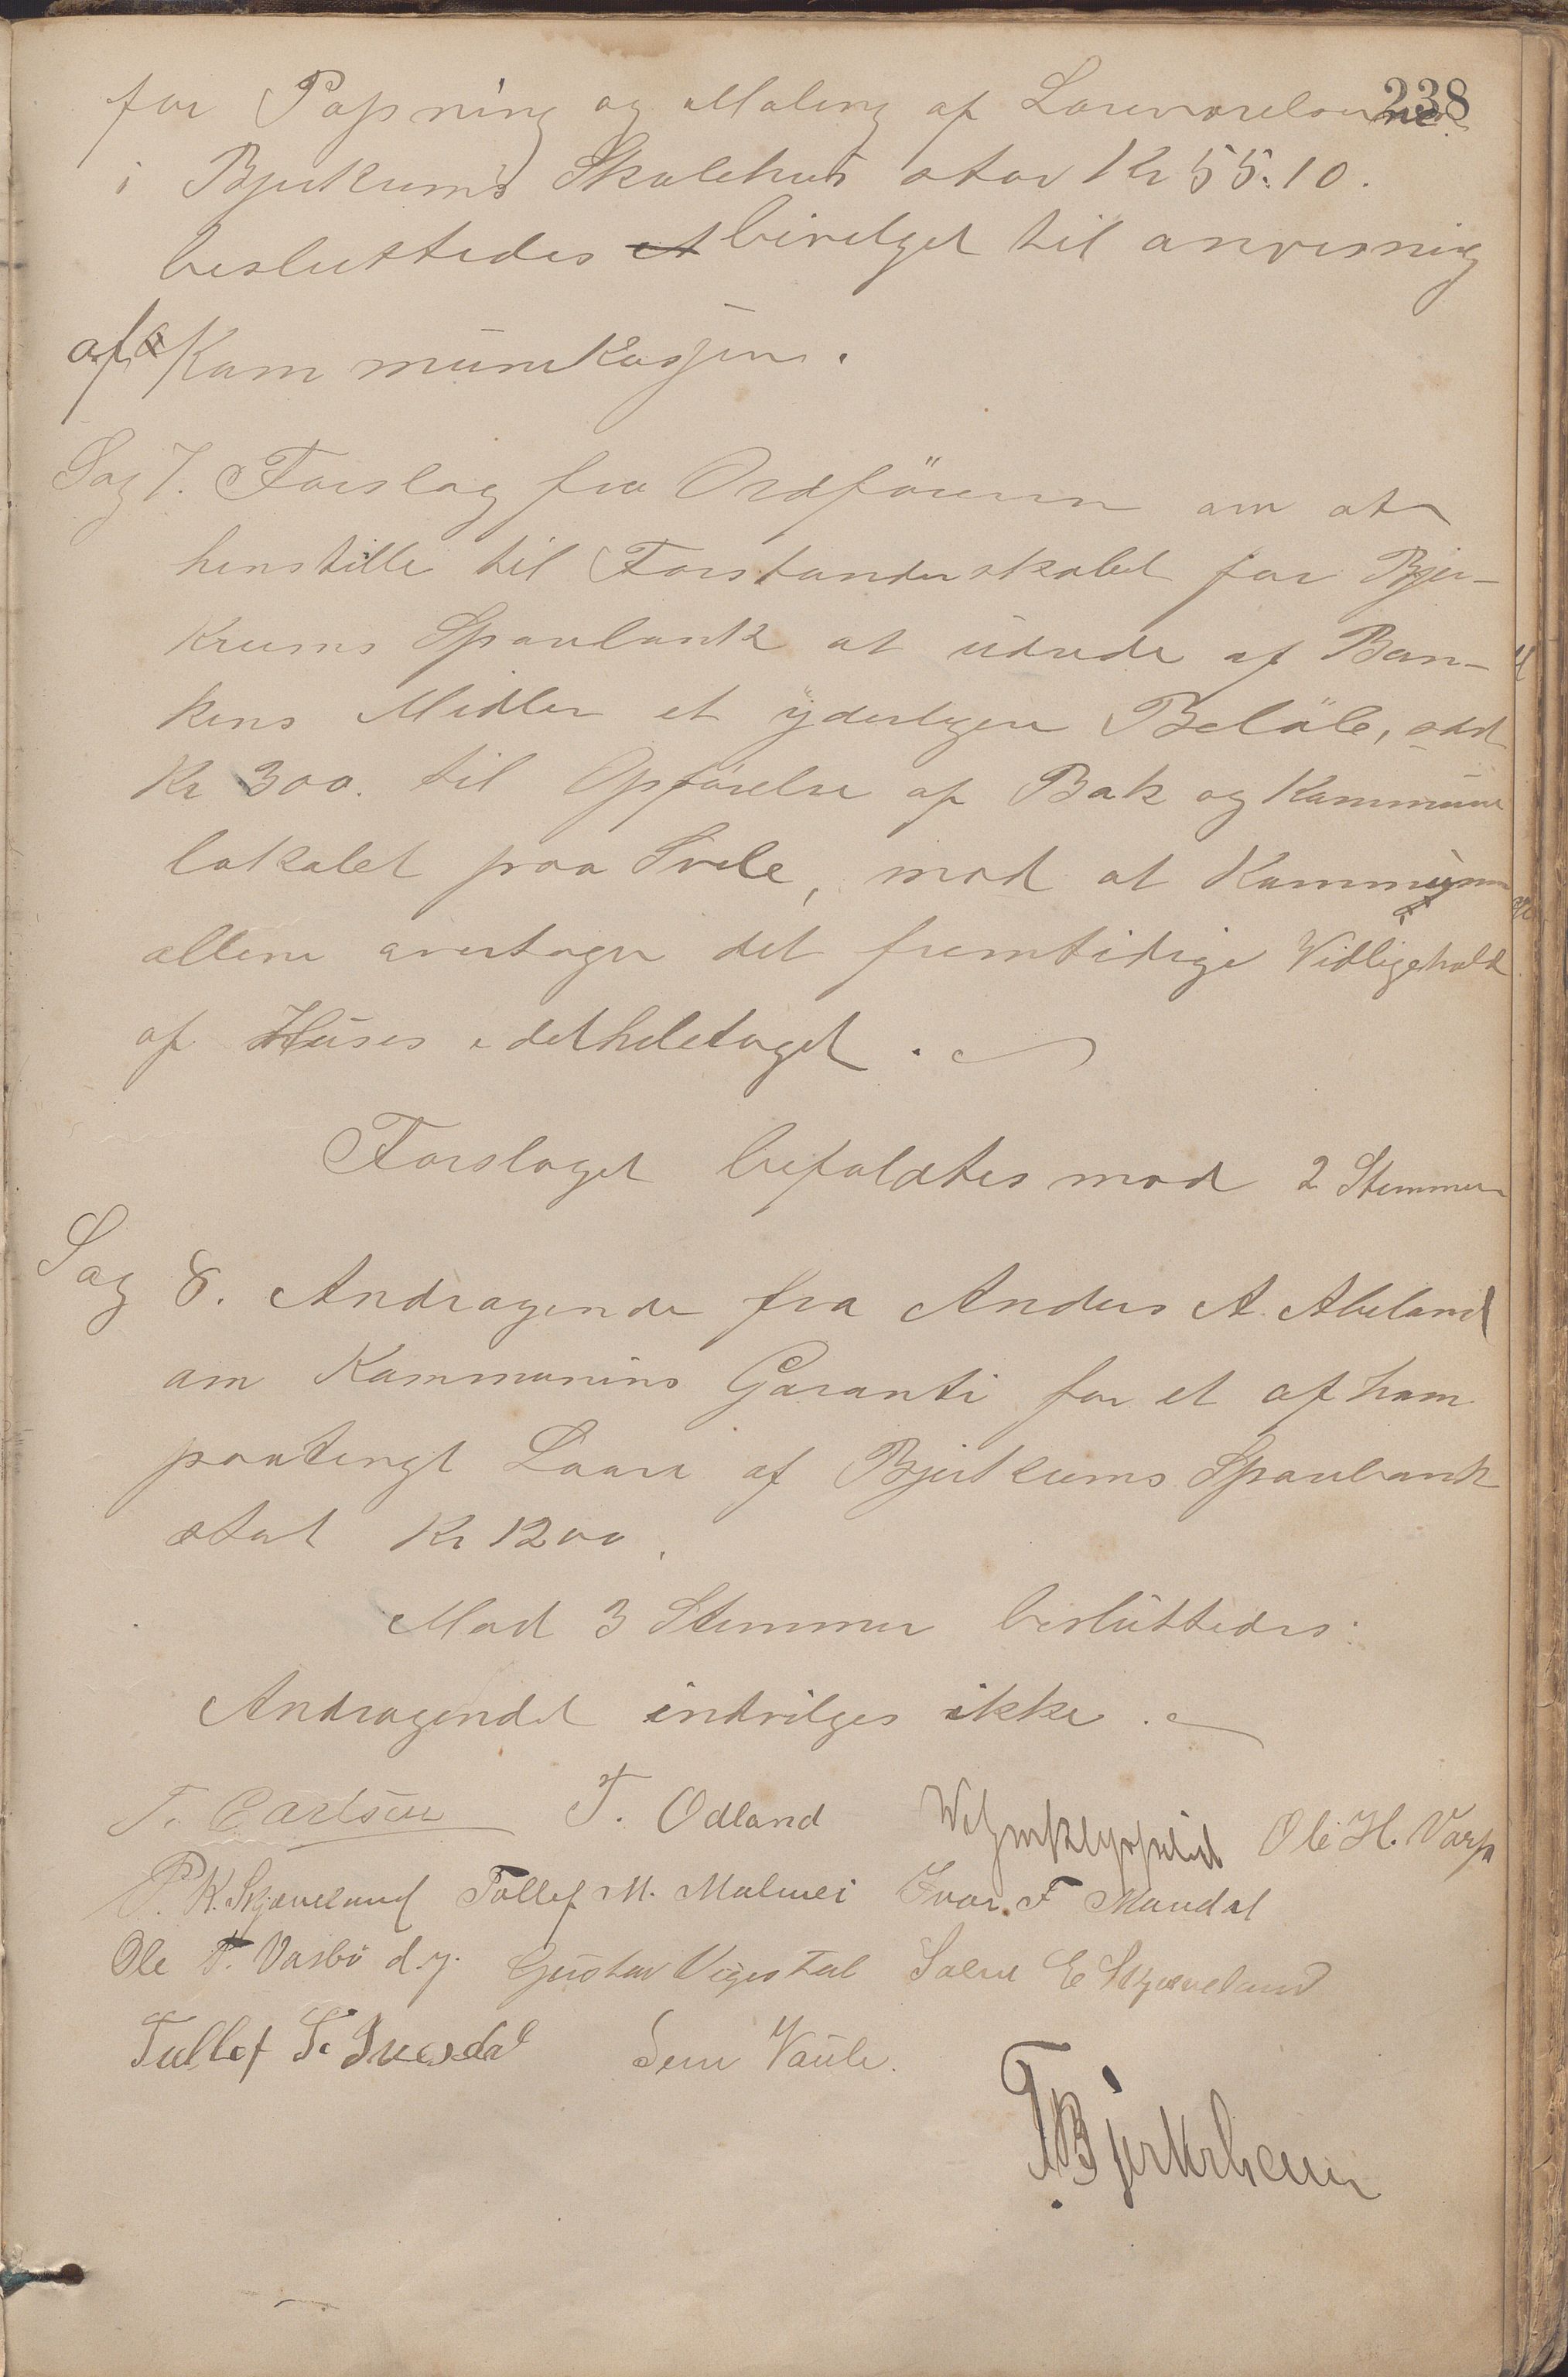 238
for Papning og Maling af Lærerværelserne
i Bjerkrums Skolehus stor Kr 55.10.
besluttedes bevilget til anvisning
af Kommunekassen.
Sag 7. Forslag fra Ordföreren om at
henstille til Forstanderskabet for Bjer-
krums Sparebank at udrede af Ban-
kens Midler et yderligere Belöb, stort
Kr 300. til Opförelse af Bak og Kommune
lokalet paa Svele, mod at Kommunen
allene overtager det fremtidige Vidligehold
af Huses i detheletaget.
Forslaget befaldtes mod 2 Stemmer
Sag 8. Andragende fra Anders A. Abeland
om Kommunens Garanti for et af ham
paatengt Laan af Bjerkrums Sparebank
stort Kr 1200.
Mod 3 Stemmer besluttedes:
Andragendet indvilges ikke.
T. Carlsen T. Odland Ole H. Varp
P. K. Skjæveland Tollef M. Malmei Ivar F Maudal
Ole T. Vasbö d.y. Gustav Vigestal Salve E Skjæveland
Tollef S. Ivesdal Sem Vaule.
T Bjerkrheim